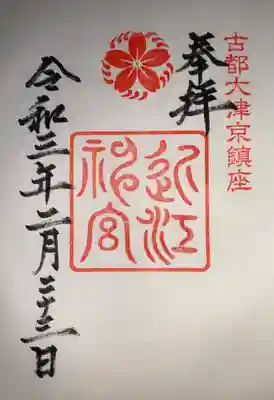 古都大津京鎮座
奉拝
近江神宮
令和三年二月二十三日